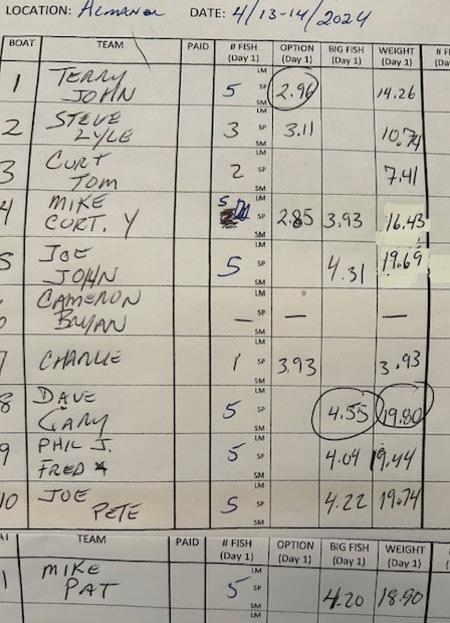 LOCATION: Almanor DATE: 4/13-14/2024
BOAT TEAM PAID # FISH (Day 1) OPTION (Day 1) BIG FISH (Day 1) WEIGHT (Day 1) # FI
LM
1 TERRY JOHN 5 SP 2.96 14.26
SM
LM
2 STEVE LYLE 3 SP 3.11 10.74
SM
LM
3 CURT TOM 2 SP 7.41
SM
LM
4 MIKE CURT. Y 5 SP 2.85 3.93 16.43
SM
LM
5 JOE JOHN 5 SP 4.31 19.69
SM
LM
CAMERON BRYAN — SP — —
SM
LM
7 CHARLIE 1 SP 3.93 3.93
SM
LM
8 DAVE GARY 5 SP 4.55 19.80
SM
LM
9 PHIL J. FRED 5 SP 4.09 19.44
SM
LM
10 JOE PETE 5 SP 4.22 19.74
SM
AT TEAM PAID # FISH (Day 1) OPTION (Day 1) BIG FISH (Day 1) WEIGHT (Day 1)
LM
1 MIKE PAT 5 SP 4.20 18.90
SM